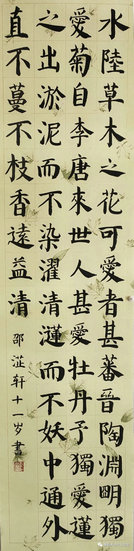 水陸草木之花可愛者甚蕃晉陶淵明獨
愛菊自李唐來世人甚愛牡丹予獨愛蓮
之出淤泥而不染濯清漣而不妖中通外
直不蔓不枝香遠益清
邵 軒十一岁書